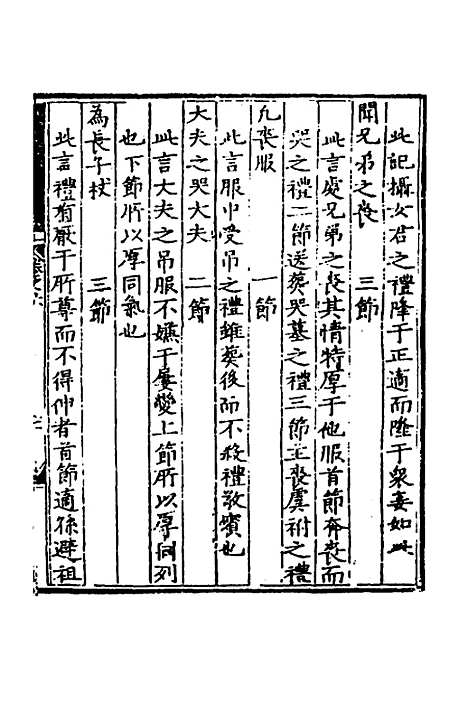 此記攝女君之禮降于正適而隆于衆妾如此
聞兄弟之喪　三節
此言處兄弟之喪其情特厚于他服首節奔喪而
哭之禮二節送葬哭墓之禮三節主喪虞祔之禮
凡喪服　一節
此言服中受吊之禮雖葬後而不殺禮敬賓也
大夫之哭大夫　二節
此言大夫之吊服不嫌于屢變上節所以厚同列
也下節所以厚同氣也
為長子杖　三節
此言禮有厭于所尊而不得伸者首節適孫避祖